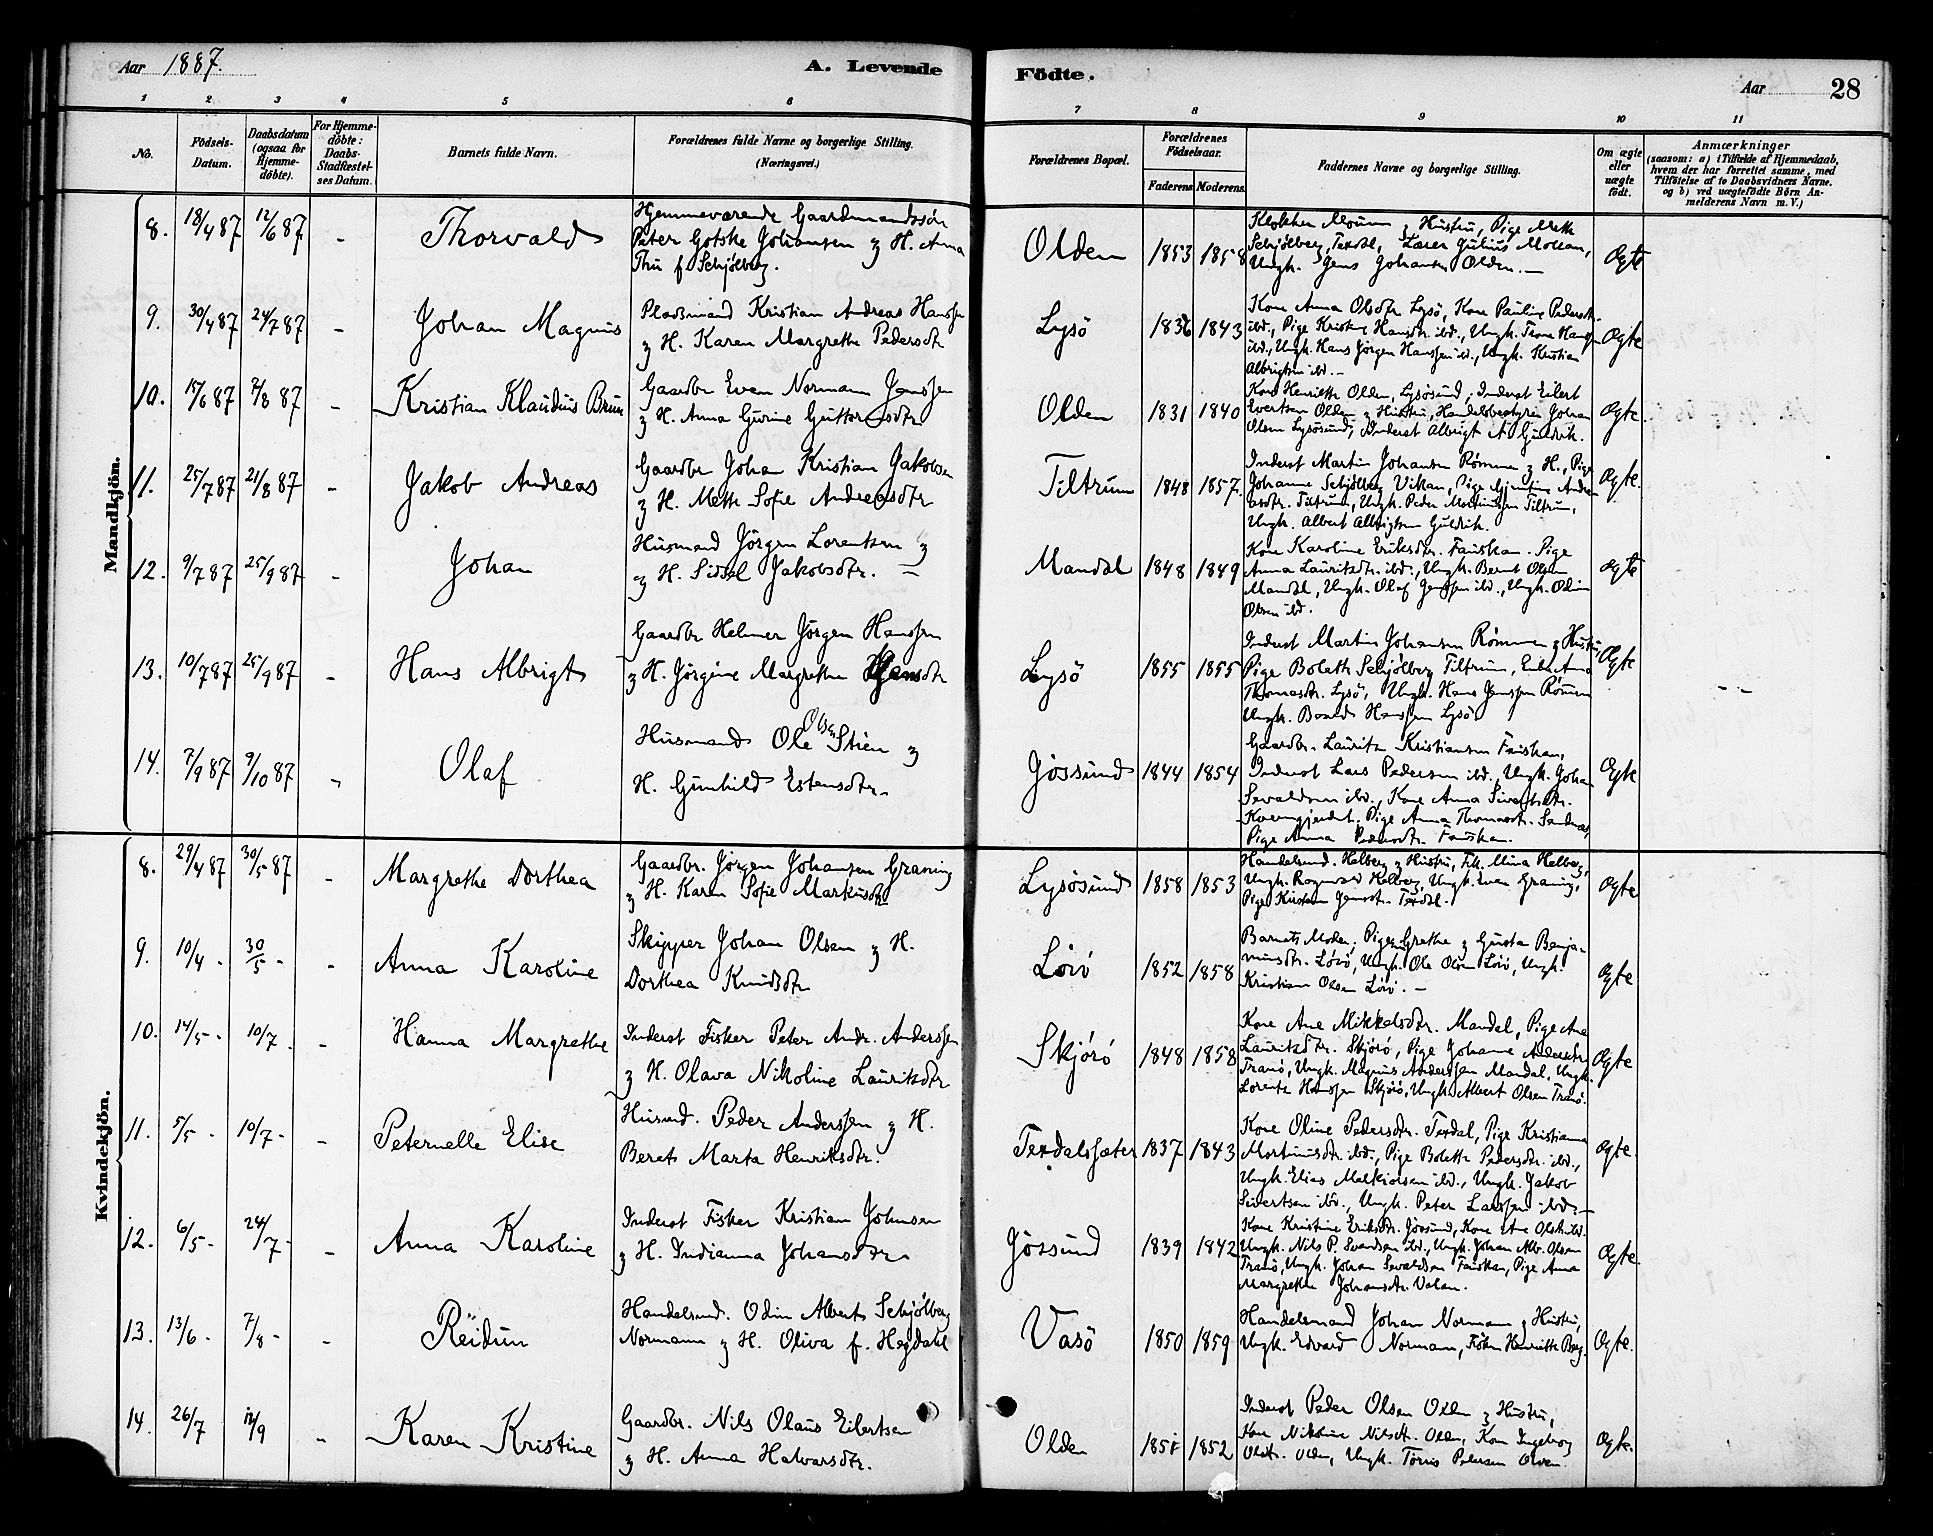 Aar 1887.
A. Levende
Födte.
Aar
28
1 2 3 4 5 6 7 8 9 10 11
No.
Födsels-Datum.
Daabsdatum (ogsaa for Hjemme-döbte).
For Hjemme-döbte: Daabs-Stadfæstel-ses Datum.
Barnets fulde Navn.
Forældrenes fulde Navne og borgerlige Stilling. (Næringsvei.)
Forældrenes Bopæl.
Forældrenes Födselsaar.
Faderens. Moderens.
Faddernes Navne og borgerlige Stilling.
Om ægte eller uægte födt.
Anmærkninger
(saasom: a) i Tilfælde af Hjemmedaab, hvem der har forrettet samme, med Tilförelse af to Daabsvidners Navne. og b) ved uægtefödte Börn An-melderens Navn m. V.)
Mandkjön.
8. 18/4 87 12/6 87 - Thorvald
Hjemmeværende Gaardmandssön
Peter Gotske Johansen & H. Anna
Thu f. Schjölberg.
Olden 1853 1858
Klokker Moum & Hustru, Pige Meth
Schjölberg, Terdal, Lærer Julius Mollan,
Ungk. Jens Johansen Olden.
Ægte
9. 30/4 87 24/7 87 - Johan Magnus
Pladsmand Kristian Andreas Hanssen
& H. Karen Margrethe Pedersdtr
Lysö 1836 1843
Kone Anna Olsdtr Lysö, Kone Pauline Pedersdtr.
ibd., Pige Kristine Hansdtr. ibd., Ungk. Hanssen
ibd., Ungk. Hans Jörgen Hanssen ibd., Ungk. Kristian
Albrigtsen ibd.
Ægte
10. 15/6 87 7/8 87 - Kristian Klaudius Brun
Gaardbr Even Normann Jenssen
& H. Anna Gurine Guttormsdtr
Olden 1831 1840
Kone Henriette Olden, Lysösund, Inderst Eilert
Evertsen Olden & Hustru, Handelsbestyrer Johan
Olsen Lysösund, Inderst Albrigt A. Guldvik.
Ægte.
11. 25/7 87 21/8 87 - Jakob Andreas
Gaardbr Johan Kristian Jakobsen
& H. Mette Sofie Andreasdtr
Tiltrum 1848 1857.
Inderst Martin Johansen Römmen & H., Pige
Johanne Schjölberg Vikan, Pige Andre-
asdtr. Tiltrum, Ungk. Peder Martinussen Tiltrum,
Ungk. Albert Albrigtsen Guldvik.
Ægte.
12. 9/7 87 25/9 87 - Johan
Husmand Jörgen Lorentsen &
& H. Sidsel Jakobsdtr.
Mandal 1848 1849
Kone Karoline Eriksdtr. Fauskan. Pige
Anna Lauritsdtr. ibd., Ungk. Bernt Olsen
Mandal, Ungk. Olaf Jenssen ibd., Ungk. Odin
Olsen ibd.
Ægte
13. 10/7 87 25/9 87 - Hans Albrigt
Gaardbr Helmer Jörgen Hanssen
& H. Jörgine Margrethe Jensdtr
Lysö 1855 1855
Inderst Martin Johansen Römmen & Hustru
Pige Boletth Schjölberg Tiltrum, Enke Anna
Thomasdtr. Lysö, Ungk. Hans Jenssen Römmen
Ungk. Hanssen Lysö
Ægte
14. 7/9 87 9/10 87 - Olaf
Husmand Ole Olsen Stien &
H. Gunhild Estensdtr.
Jössund 1844 1854
Gaardbr. Laurits Kristiansen Fauskan,
Inderst Lars Pedersen ibd., Ungk. Johan
Sevaldsen ibd., Kone Anna Sivertsdtr.
Kverngjerdet, Pige Anna Thomasdtr. Sandnæs,
Pige Anna Pedersdtr. Fauskan.
Ægte
Kvindekjön.
8. 29/4 87 30/5 87 - Margrethe Dorthea
Gaardbr. Jörgen Johansen Graning
& H. Karen Sofie Markusdtr
Lysösund 1858 1853
Handelsmd. Helberg & Hustru, Frk. Mina Helberg,
Ungk. Ragnvald Helberg, Ungk. Even Graning,
Pige Kirsten Jensdtr. Terdal.
Ægte
9. 10/4 - 30/5 - - Anna Karoline
Skipper Johan Olsen & H.
Dorthea Knudsdtr
Lörö 1852 1858
Barnets Moder, Pigen Grethe & Gusta Benja-
minsdtr. Lörö, Ungk. Ole Olsen Lörö, Ungk.
Kristian Olsen Lörö.
Ægte
10. 14/5 - 10/7 - Hanna Margrethe
Inderst Fisker Peter Andr. Anderssen
& H. Olava Nikoline Lauritsdtr
Skjörö 1848 1858
Kone Ane Mikkelsdtr. Mandal, Pige Ane
Lauritsdtr. Skjörö, Pige Johanne Andersdtr
Tranö, Ungk. Magnus Anderssen Mandal, Ungk.
Lorents Hanssen Skjörö, Ungk. Albert Olsen Tranö.
Ægte
11. 5/5 - 10/7 - - Peternelle Elise
Husmd. Peder Anderssen & H.
Beret Marta Henriksdtr.
Terdalssæter 1837 1843
Kone Oline Pedersdtr. Terdal, Pige Kristianna
Martinusdtr. ibd., Pige Bolette Pedersdtr. ibd.,
Ungk. Elias Melkiorsen ibd., Ungk. Jakob
Sivertsen ibd., Ungk. Peter Larssen ibd.
Ægte.
12. 6/5 - 24/7 - - Anna Karoline
Inderst Fisker Kristian Johnsen
& H. Indianna Johansdtr
Jössund 1839 1842
Kone Kristine Eriksdtr. Jössund, Kone Ane ibd.
Ungk. Nils P. Svendsen ibd., Ungk. Johan Alb. Olsen
Tranö, Ungk. Johan Sevaldsen Fauskan, Pige Anna
Margrethe Johansdtr. Valan.
Ægte
13. 13/6 - 7/8 - - Reidun
Handelsmd. Odin Albert Schjölberg
Normann & H. Oliva f. Hegdahl
Vasö 1850 1859
Handelsmand Johan Normann & Hustru,
Ungk. Edvard Normann, Fröken Henriette Berg.
Ægte.
14. 26/7 12/9 - Karen Kristine
Gaardbr. Nils Olaus Eilertsen
& H. Anna Halvarsdtr.
Olden 1851 1852
Inderst Peder Olsen Olden & Hustru,
Kone Nikoline Nilsdtr. Olden, Kone Ingeborg
Olsdtr. Olden, Ungk. Törris Pedersen Olden.
Ægte.